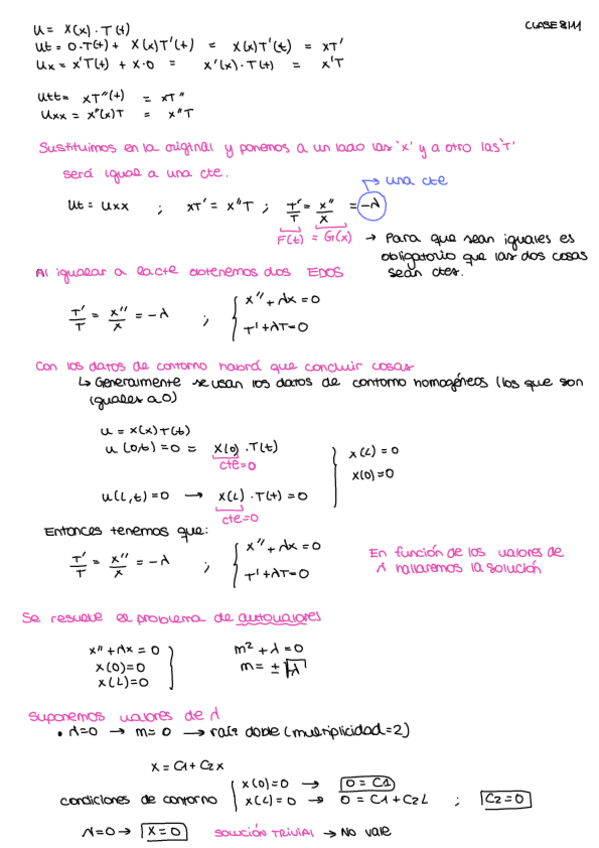 CLASE 8/11
u = X(x) · T(t)
ut = 0·T(t) + X(x)T'(t) = X(x)T'(t) = XT'
ux = x'T(t) + x·0 = x'(x)·T(t) = x'T
utt = XT''(t) = XT''
uxx = x''(x)T = x''T
Sustituimos en la original y ponemos a un lado las 'x' y a otro las 'T'
será igual a una cte.
→ una cte
ut = uxx ; XT' = X''T ; T'/T = X''/X = -λ
F(t) = G(x) → Para que sean iguales es
obligatorio que las dos cosas
sean ctes.
Al igualar a la cte obtenemos dos EDOS
T'/T = X''/X = -λ ; { X'' + λx = 0
T' + λT = 0
Con los datos de contorno habrá que concluir cosas
↳ Generalmente se usan los datos de contorno homogéneos (los que son
iguales a 0)
u = X(x)T(t)
u(0,t) = 0 = X(0) · T(t)
cte=0
X(L) = 0
X(0) = 0
u(L,t) = 0 → X(L) · T(t) = 0
cte=0
Entonces tenemos que:
T'/T = X''/X = -λ ; { X'' + λx = 0
T' + λT = 0
En función de los valores de
λ hallaremos la solución
Se resuelve el problema de autovalores
x'' + λx = 0
x(0) = 0
x(L) = 0
m² + λ = 0
m = ± √-λ
Suponemos valores de λ
• λ=0 → m=0 → raíz doble (multiplicidad=2)
X = C1 + C2x
condiciones de contorno { x(0) = 0 → 0 = C1
x(L) = 0 → 0 = C1 + C2L ; C2 = 0
λ=0 → X = 0 SOLUCIÓN TRIVIAL → No vale